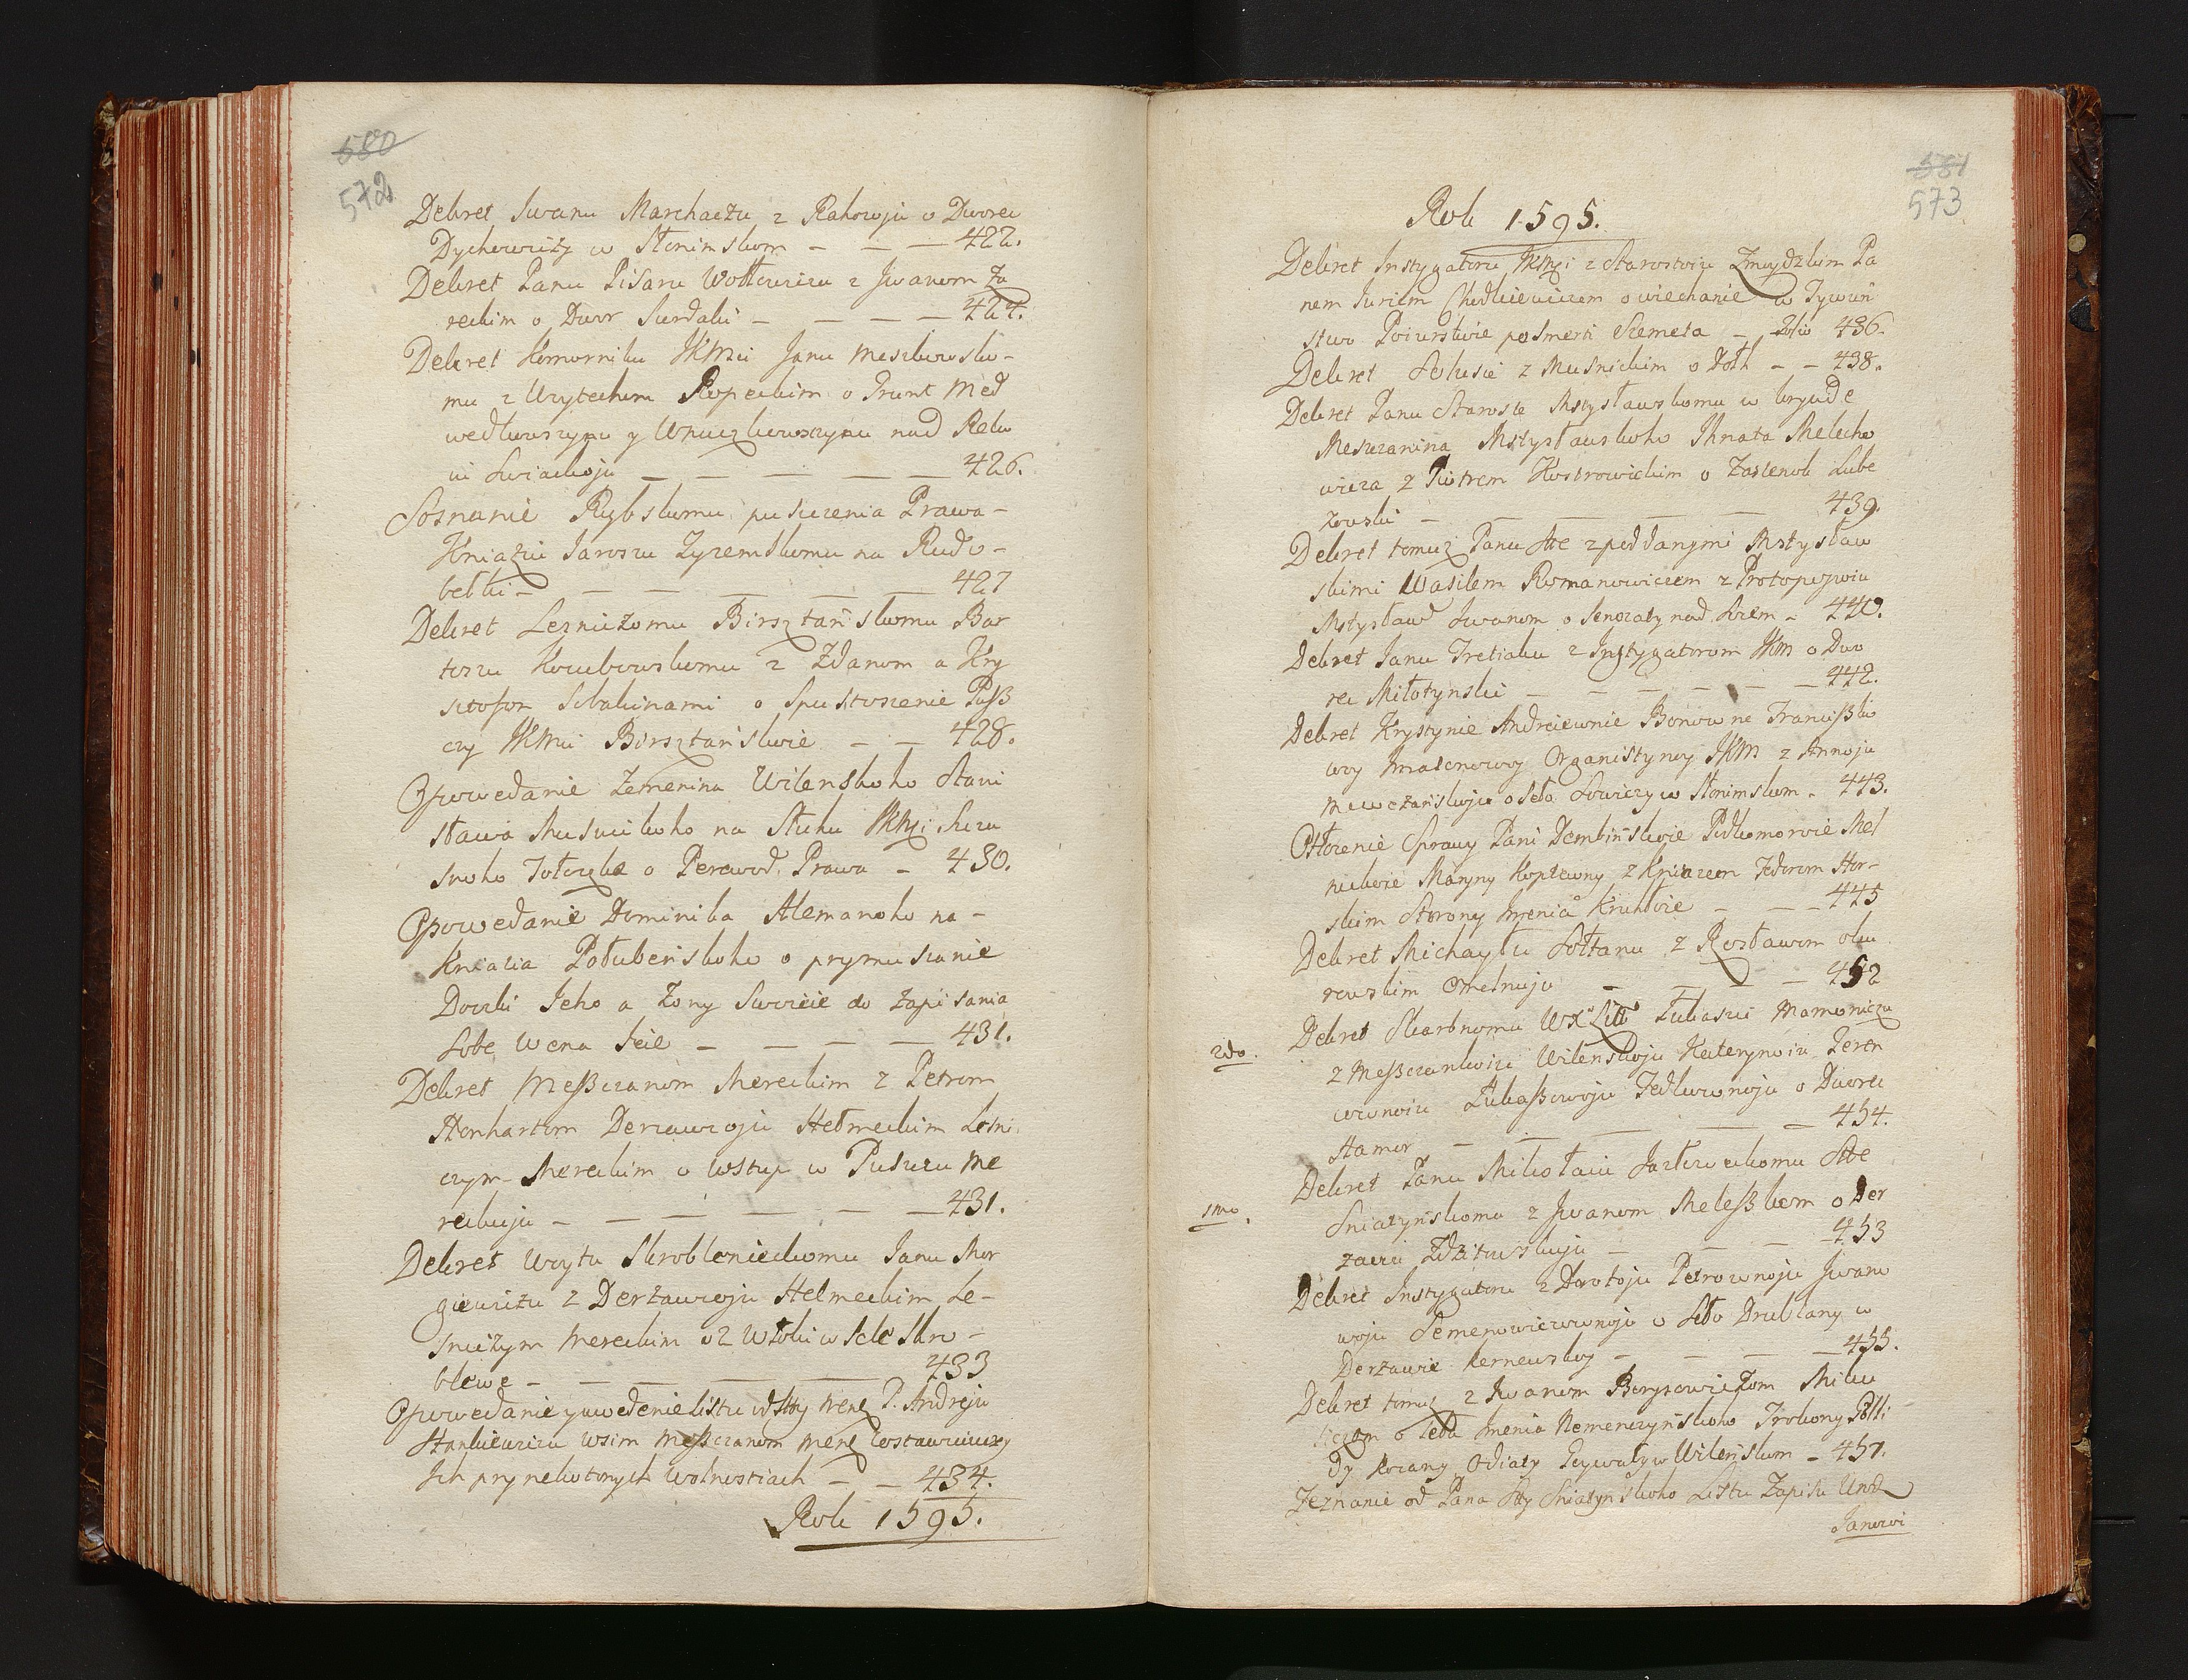 580
572
Dekret Iwanu Marchaczu z Rahozoju o Dworec
Dychowiczy w Słonimskom - - - 422.
Dekret Panu Pisaru Wołłowiczu z Jwanom Za
reckim o Dwor Surdaki - - - - 424.
Dekret Komorniku JKMci Janu Meszkowsko-
mu z Woytechom Ropeckim o Grunt Med
wedkowszynu y Wnuczkowszynu nad Reko
iu Swiackoju - - - - - 426.
Sosnanie Rybskomu pusczenia Prawa-
Kniaziu Jaroszu Zyzemskomu na Rudo-
bełki - - - - - - 427
Dekret Lesniczomu Birsztańskomu Bar
toszu Kocubowskomu z Zdanom a Kry
sztofom Szbakinami o Spustoszenie Pusz
czy JKMci Birsztańskoie - - 428.
Opowedanie Zemenina Wilenskoho Stani
sława Musnickoho na Sluhu JKMci
snoho Tołoczka o Perewod Prawa - 430.
Opowedanie Dominika Alemanoho na-
Kniazia Połubeńskoho o prymuszanie
Doczki Jeho a Zony Swoieie do Zapisania
Sobe Wena Seie - - - - 431.
Dekret Meszczanom Mereckim z Petrom
Stonhartom Derzawcoju Stełmeckim Lesni
czym Mereckim o Wstup w Puszczu Me
reckuju - - - - - - 431.
Dekret Woytu Skroblenieckomu Janu Mor
giewiczu z Derzawcoju Stelmeckim Le-
sniczym Mereckim o 2 Włoki w Sele Skro-
blewe - - - - - - 433
Opowedanie y uwedenie Listu od P. Andreju
Stankiewiczu wsim Meszczanom
Ich pry nekotorych wolnostiach - - 434.
Rok 1595.
581
573
Rok 1595.
Dekret Instygatoru JKMci z Starostoiu Zmuydzkim Pa
nem Juriem Chodkiewiczem o wiechanie w Tywuń
stwo Poiurskoie po smerti Szemeta - Folio 436.
Dekret Solusie z Musnickim o Dołh - - 438.
Dekret Panu Staroste Mstysławskomu w krywde
Mesczanina Mstysławskoho Ihnata Melecho
wicza z Piotrem Kostrowickim o Zastenok Lube
zowski - - - - - 439.
Dekret tomuż Panu Ste z poddanymi Mstysław
skimi Wasilem Romanowiczem z Protopopwiu
Mstysław Iwanom o Senozaty nad Sozem - 440.
Dekret Janu Tretiaku z Instygatorom JKM o Dwo
rec Miłotynski - - - - - - 442.
Dekret Krystynie Andreiewnie Bonowne Franciszko
woy Organistynoy JKM z Annoju
o Seło Łowiczy w Słonimskom - 443.
Otłozenie Sprawy Pani Dembińskoie Podkomoroie Mel
nickoie Maryny Kopzewny z Kniazem Fedorom Hor-
skim Storony Jmenia Kruhłoie - - - 445
Dekret Michayłu Sołtanu z Rosławom oku
rewskim - - - - 452
2do. Dekret Skarbnomu WXLitt Łukaszu Mamoniczu
z Meszczankoiu Wilenskoju Katerynoiu Feren
cownoiu Łukaszowoju Fedkowonoju o Dworec
Hamor - - - - - 454.
1mo. Dekret Panu Mikołaiu Jazłoweckomu Ste
Sniatyńskomu z Jwanom Meleszkom o Der
zawu Zdzitowskuju - - - 453
Dekret Instygatoru z Dorotoju Petrownoju Jwano
woju Semenowiczownoju o Seło Drublany w
Derzawie Kernewskoy - - - - 455.
Dekret tomuż z Jwanom Borysowiczom Miku
liczom o Jmenia Nemenczynskoho
w Wilenskom - 457.
Zeznanie od Pana Sty Sniatynskoho Listu Zapisu
Janowi